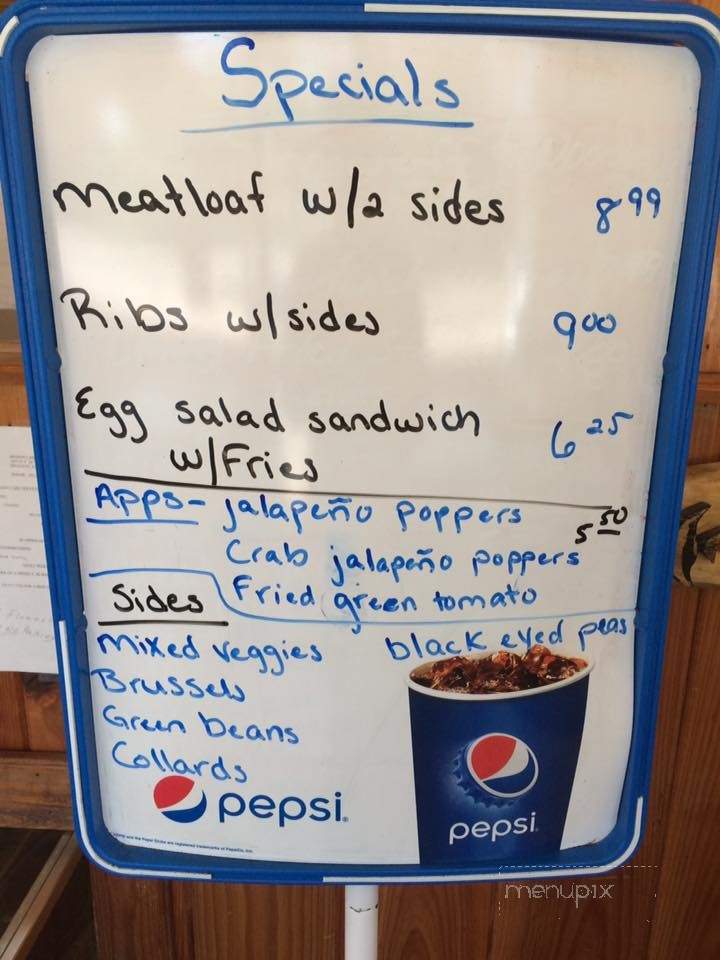 Specials
Meatloaf w/2 sides 8 99
Ribs w/sides 9 00
Egg salad sandwich 6 25
w/Fries
Apps- jalapeño poppers 5 50
Crab jalapeño poppers
Fried green tomato
Sides
Mixed veggies black eyed peas
Brussels
Green beans
Collards
pepsi.
pepsi
menupix